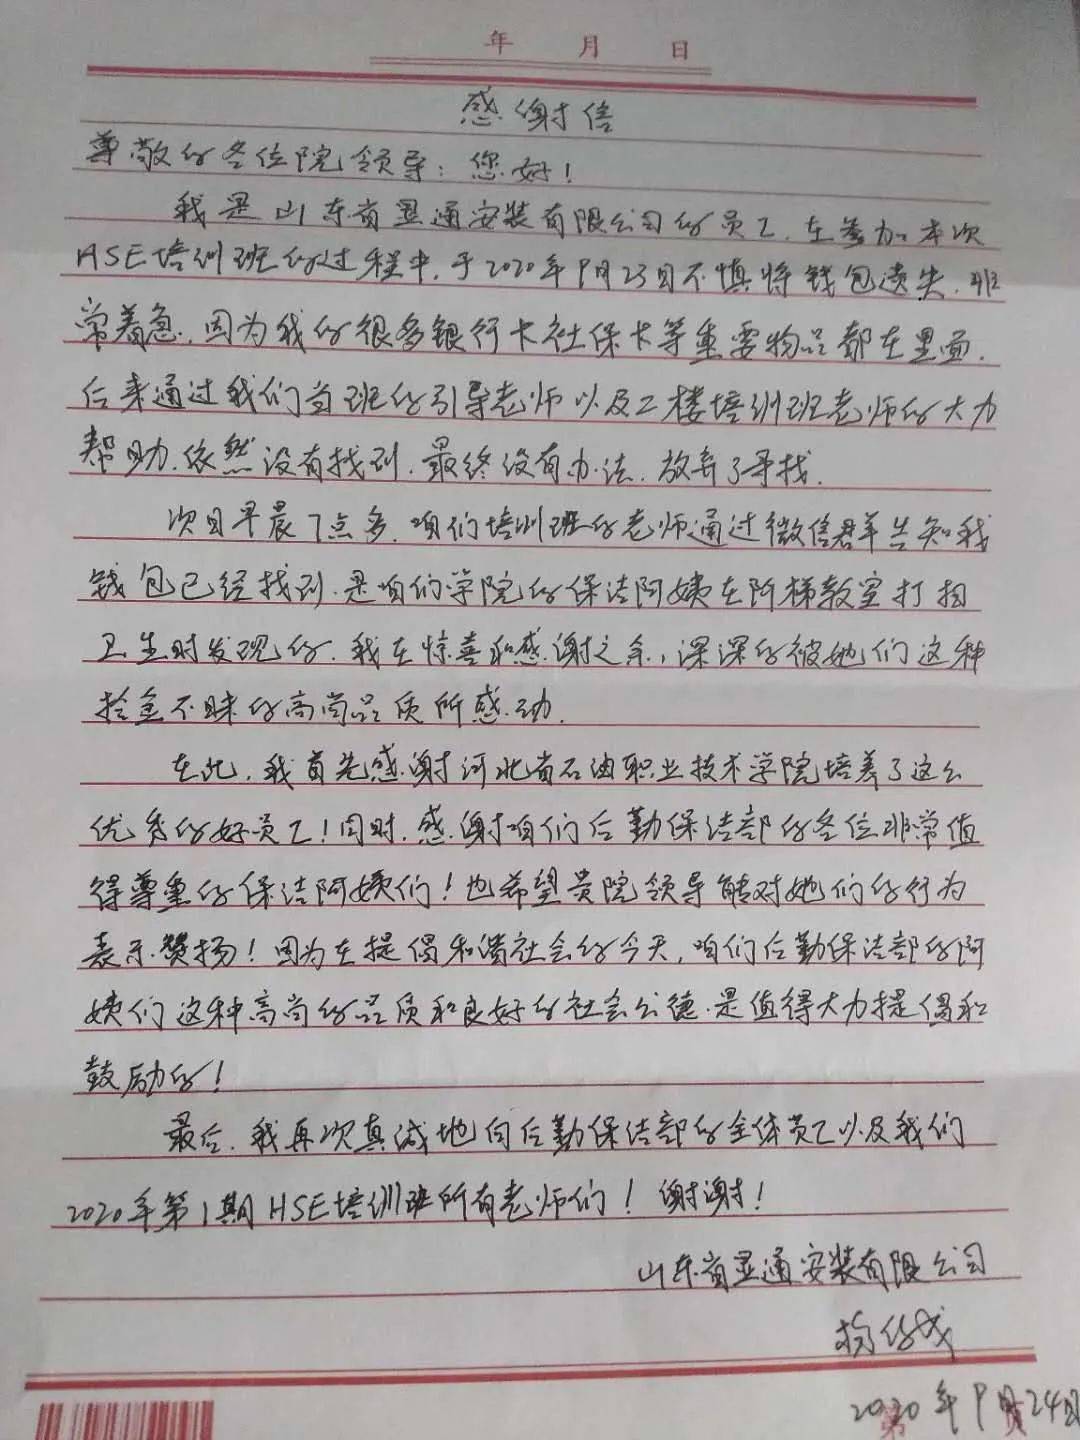 年 月 日
感谢信
尊敬的各位院领导：您好！
我是山东省显通安装有限公司的员工，在参加本次
HSE培训班的过程中，于2020年9月23日不慎将钱包遗失，非
常着急，因为我的很多银行卡社保卡等重要物品都在里面，
后来通过我们当班的引导老师以及二楼培训班老师的大力
帮助，依然没有找到，最终没有办法，放弃了寻找，
次日早晨7点多，咱们培训班的老师通过微信群告知我
钱包已经找到，是咱们学院的保洁阿姨在阶梯教室打扫
卫生时发现的，我在惊喜和感谢之余，深深的被她们这种
拾金不昧的高尚品质所感动，
在此，我首先感谢河北省石油职业技术学院培养了这么
优秀的好员工！同时，感谢咱们后勤保洁部的各位非常值
得尊重的保洁阿姨们！也希望贵院领导能对她们的行为
表示赞扬！因为在提倡和谐社会的今天，咱们后勤保洁部的阿
姨们这种高尚的品质和良好的社会公德，是值得大力提倡和
鼓励的！
最后，我再次真诚地向后勤保洁部的全体员工以及我们
2020年第1期HSE培训班所有老师们！谢谢！
山东省显通安装有限公司
2020年9月24日